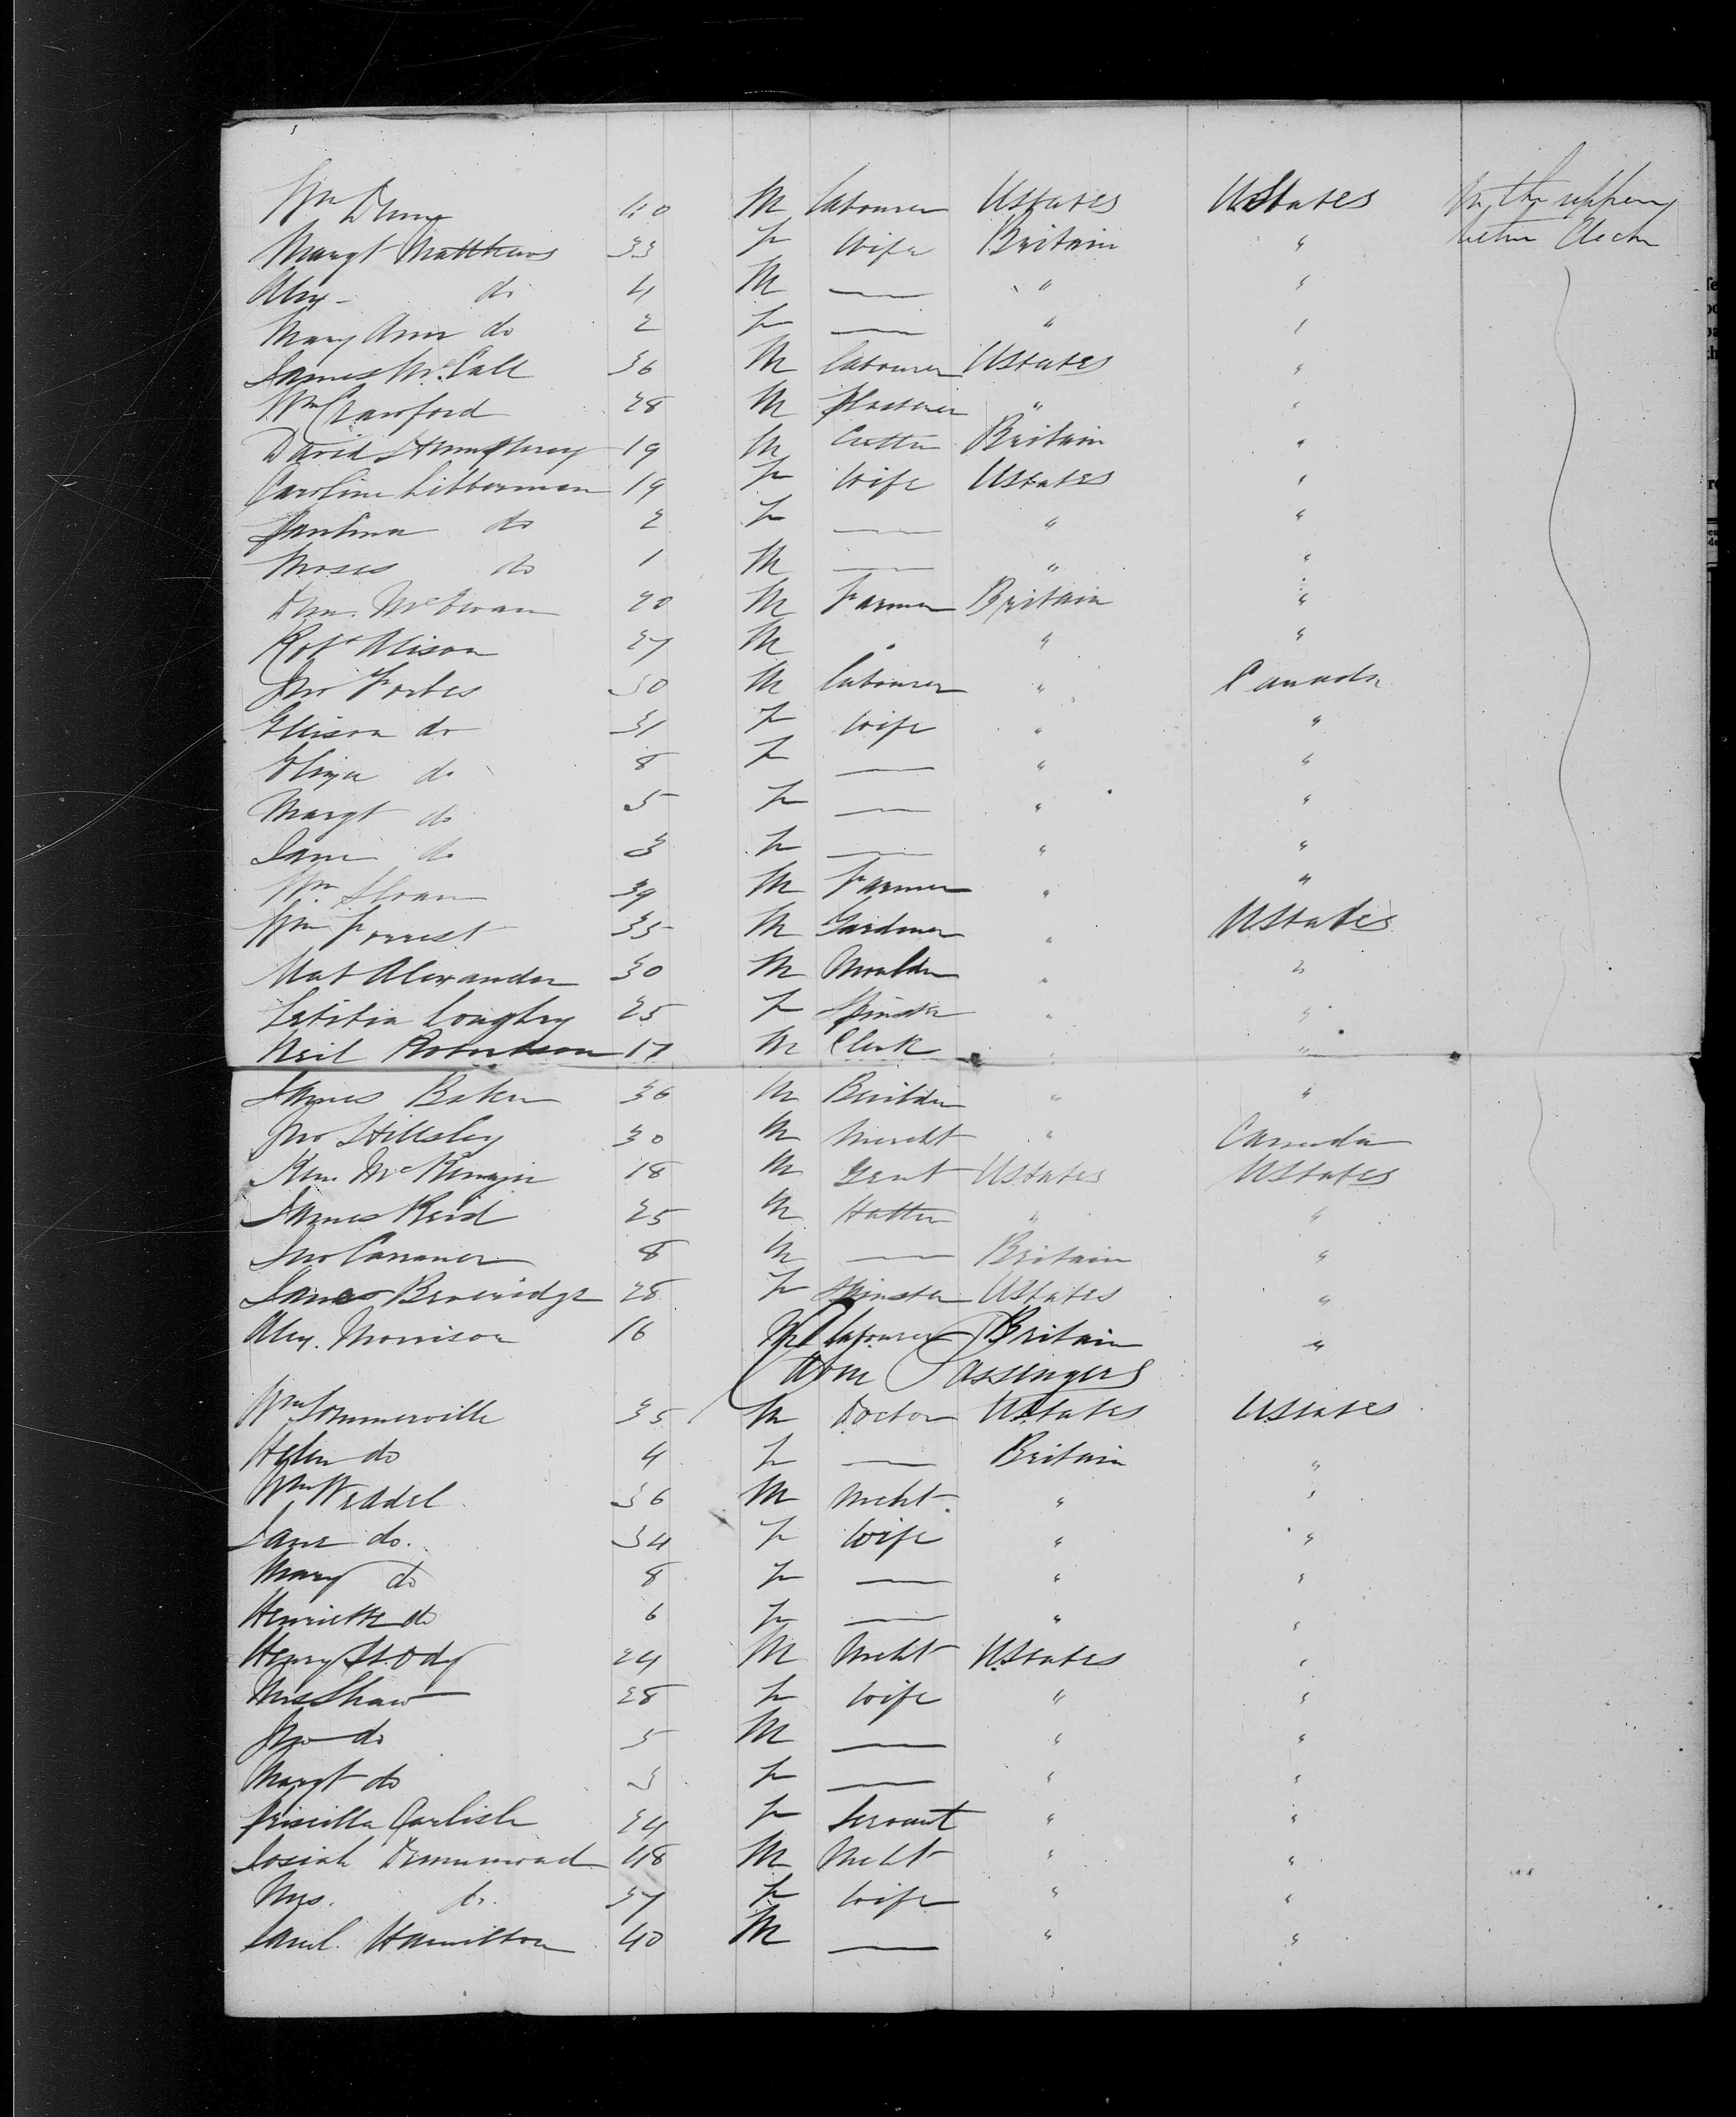 Wm Deny 40 M Labourer UStates UStates In the upper
Margt Matthews 33 F Wife Britain "
Alex - do 4 M — " "
Mary Ann do 2 F — " "
James McCall 36 M Labourer UStates "
Wm Crawford 28 M Plasterer " "
David Humphrey 19 M Cutter Britain "
Caroline Litterman 19 F Wife UStates "
Paulina do 2 F — " "
Moses do 1 M — " "
Dun. McEwan 20 M Farmer Britain "
Robt Alison 27 M " " "
Jno Forbes 30 M Labourer " Canada
Ellison do 31 F Wife " "
Eliza do 8 F — " "
Margt do 5 F — " "
Jane do 3 F — " "
Wm Sloan 39 M Farmer " "
Wm Forrest 35 M Gardener " UStates
Mat Alexander 30 M Moulder " "
Letitia Loughry 25 F Spinster " "
Neil Robertson 17 M Clerk " "
James Baker 36 M Builder " "
Jno Hillsley 30 M Mercht " Canada
Ken. McKenzie 18 M Gent UStates UStates
James Reid 25 M Hatter " "
Jno 8 M — Britain "
Beveridge 28 F Spinster UStates "
Alex. Morrison 16 M Labourer Britain "
Passengers
Wm Sommerville 35 M Doctor UStates UStates
Helen do 4 F — Britain "
Wm Weddel 36 M Mcht " "
Jane do. 34 F Wife " "
Mary do 8 F — " "
Henriette do 6 F — " "
Henry 24 M Mcht UStates "
Mrs Shaw 28 F Wife " "
Jno do 5 M — " "
Margt do 3 F — " "
Priscilla Carlisle 24 F Servant " "
Josiah Drummond 48 M Mcht " "
Mrs. do. 37 F Wife " "
Saml. Hamilton 40 M — " "